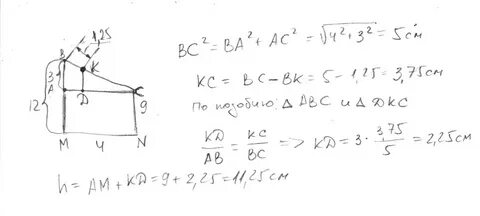 1,25
B
K
3
A
D
C
12
9
M
4
N
BC² = BA² + AC² = √4² + 3² = 5 см
KC = BC – BK = 5 – 1,25 = 3,75 см
По подобию: △ ABC и △ DKC
KD/AB = KC/BC => KD = 3 · 3,75/5 = 2,25 см
h = AM + KD = 9 + 2,25 = 11,25 см